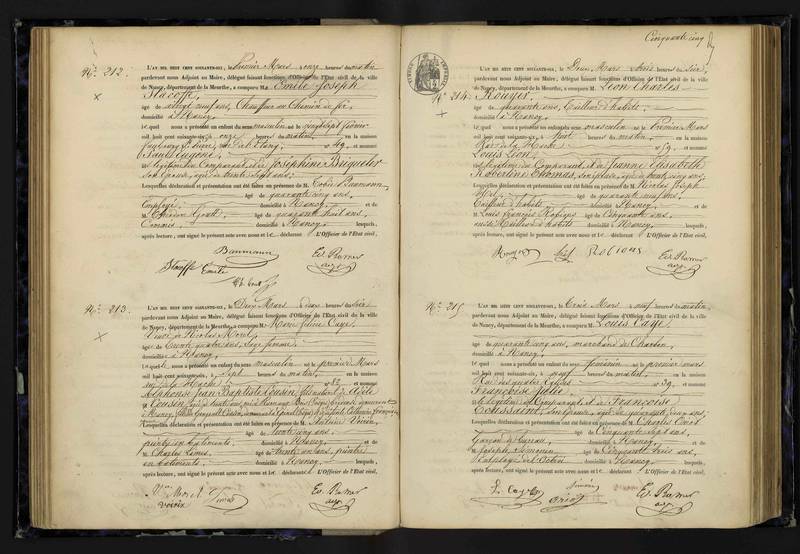 No. 212.
L'AN MIL HUIT CENT SOIXANTE-SIX, le Premier Mars onze heures du matin
pardevant nous Adjoint au Maire, délégué faisant fonctions d'Officier de l'État civil de la ville
de Nancy, département de la Meurthe, a comparu M. Emile Joseph
âgé de vingt neuf ans, Chauffeur au Chemin de fer,
domicilié à Nancy
lequel nous a présenté un enfant du sexe masculin né le vingt sept février
mil huit cent soixante-six, à onze heures du matin, en la maison
n° 49, et nommé
Paul Eugène,
fils légitime du Comparant et de Joséphine Briqueler
son épouse, âgée de trente sept ans;
Lesquelles déclaration et présentation ont été faites en présence de M. Tobie Baumann,
âgé de quarante cinq ans,
Employé, domicilié à Nancy, et de
M. âgé de quarante huit ans,
Commis, domicilié à Nancy, lesquels,
après lecture, ont signé le présent acte avec nous et le déclarant L'Officier de l'État civil,
Baumann
Ed. Ramer
adj.
No. 213.
L'AN MIL HUIT CENT SOIXANTE-SIX, le Deux Mars deux heures du soir
pardevant nous Adjoint au Maire, délégué faisant fonctions d'Officier de l'État civil de la ville
de Nancy, département de la Meurthe, a comparu M. Marie Julie Caye,
Veuve de Nicolas Morel,
âgée de trente quatre ans, Sage femme
domiciliée à Nancy
laquelle nous a présenté un enfant du sexe masculin né le premier Mars
mil huit cent soixante-six, à sept heures du matin, en la maison
rue de la Hache n° 82, et nommé
Alphonse Jean Baptiste Cousin,
Lesquelles déclaration et présentation ont été faites en présence de M. Antoine Voirin,
âgé de trente cinq ans,
peintre en bâtiments, domicilié à Nancy, et de
M. Charles âgé de trente un ans, peintre
en bâtiments, domicilié à Nancy, lesquels,
après lecture, ont signé le présent acte avec nous et le déclarant L'Officier de l'État civil,
Vve Morel
Voirin
Ed. Ramer
adj.
Cinquante cinq
No. 214.
L'AN MIL HUIT CENT SOIXANTE-SIX, le Deux Mars trois heures du soir,
pardevant nous Adjoint au Maire, délégué faisant fonctions d'Officier de l'État civil de la ville
de Nancy, département de la Meurthe, a comparu M. Léon Charles
Rouyer,
âgé de quarante ans, Tailleur d'habits,
domicilié à Nancy
lequel nous a présenté un enfant du sexe masculin né le premier Mars
mil huit cent soixante-six, à huit heures du matin, en la maison
Rue de la Hache n° 59, et nommé
Louis Léon,
fils légitime du Comparant et de Jeanne Elisabeth
Robertine Thomas, son épouse, âgée de trente cinq ans;
Lesquelles déclaration et présentation ont été faites en présence de M. Nicolas Joseph
âgé de quarante neuf ans,
Tailleur d'habits domicilié à Nancy, et de
M. Louis François Robious âgé de Cinquante ans,
aussi Tailleur d'habits domicilié à Nancy, lesquels,
après lecture, ont signé le présent acte avec nous et le déclarant L'Officier de l'État civil,
Rouyer
Robious
Ed. Ramer
adj.
No. 215
L'AN MIL HUIT CENT SOIXANTE-SIX, le Trois Mars neuf heures du matin,
pardevant nous Adjoint au Maire, délégué faisant fonctions d'Officier de l'État civil de la ville
de Nancy, département de la Meurthe, a comparu M. Louis Caye,
âgé de quarante cinq ans, marchand de Charbon,
domicilié à Nancy
lequel nous a présenté un enfant du sexe féminin né le premier mars
mil huit cent soixante-six, à neuf heures du matin, en la maison
Rue des quatre Eglises n° 59, et nommé
Françoise Julie,
fille légitime du Comparant et de Françoise
Toussaint, son épouse, âgée de quarante cinq ans;
Lesquelles déclaration et présentation ont été faites en présence de M. Charles Oriot
âgé de Cinquante sept ans,
Garçon de bureau domicilié à Nancy, et de
M. Joseph Simonin âgé de Cinquante trois ans,
domicilié à Nancy, lesquels,
après lecture, ont signé le présent acte avec nous et le déclarant L'Officier de l'État civil,
L. Caye
Simonin
Oriot
Ed. Ramer
adj.